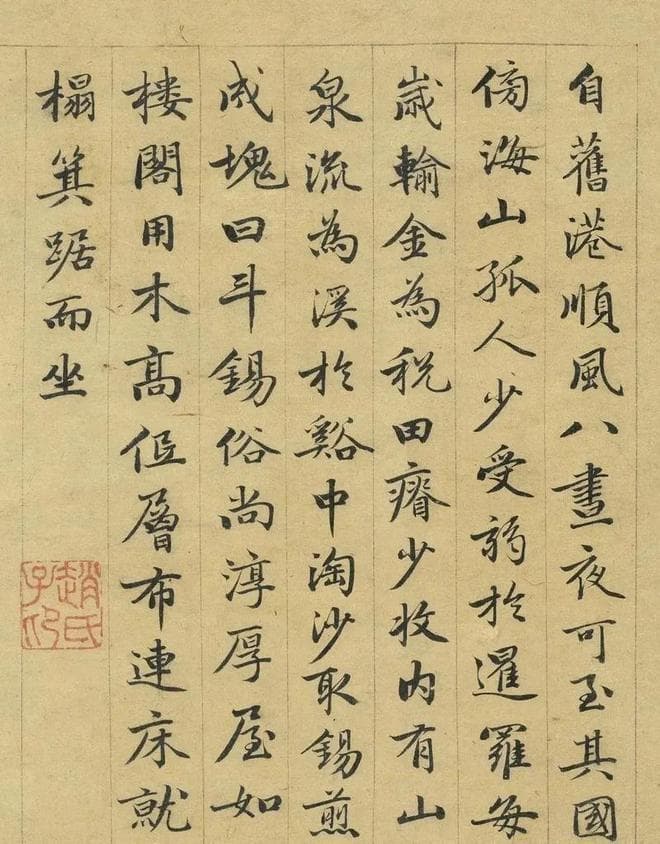 自舊港順風八晝夜可至其國
傍海山孤人少受弱於暹羅每
歲輸金為税田瘠少收内有山
泉流為溪於谿中淘沙取錫煎
成塊曰斗錫俗尚淳厚屋如
楼閣用木高低層布連床就
榻箕踞而坐
趙氏子印